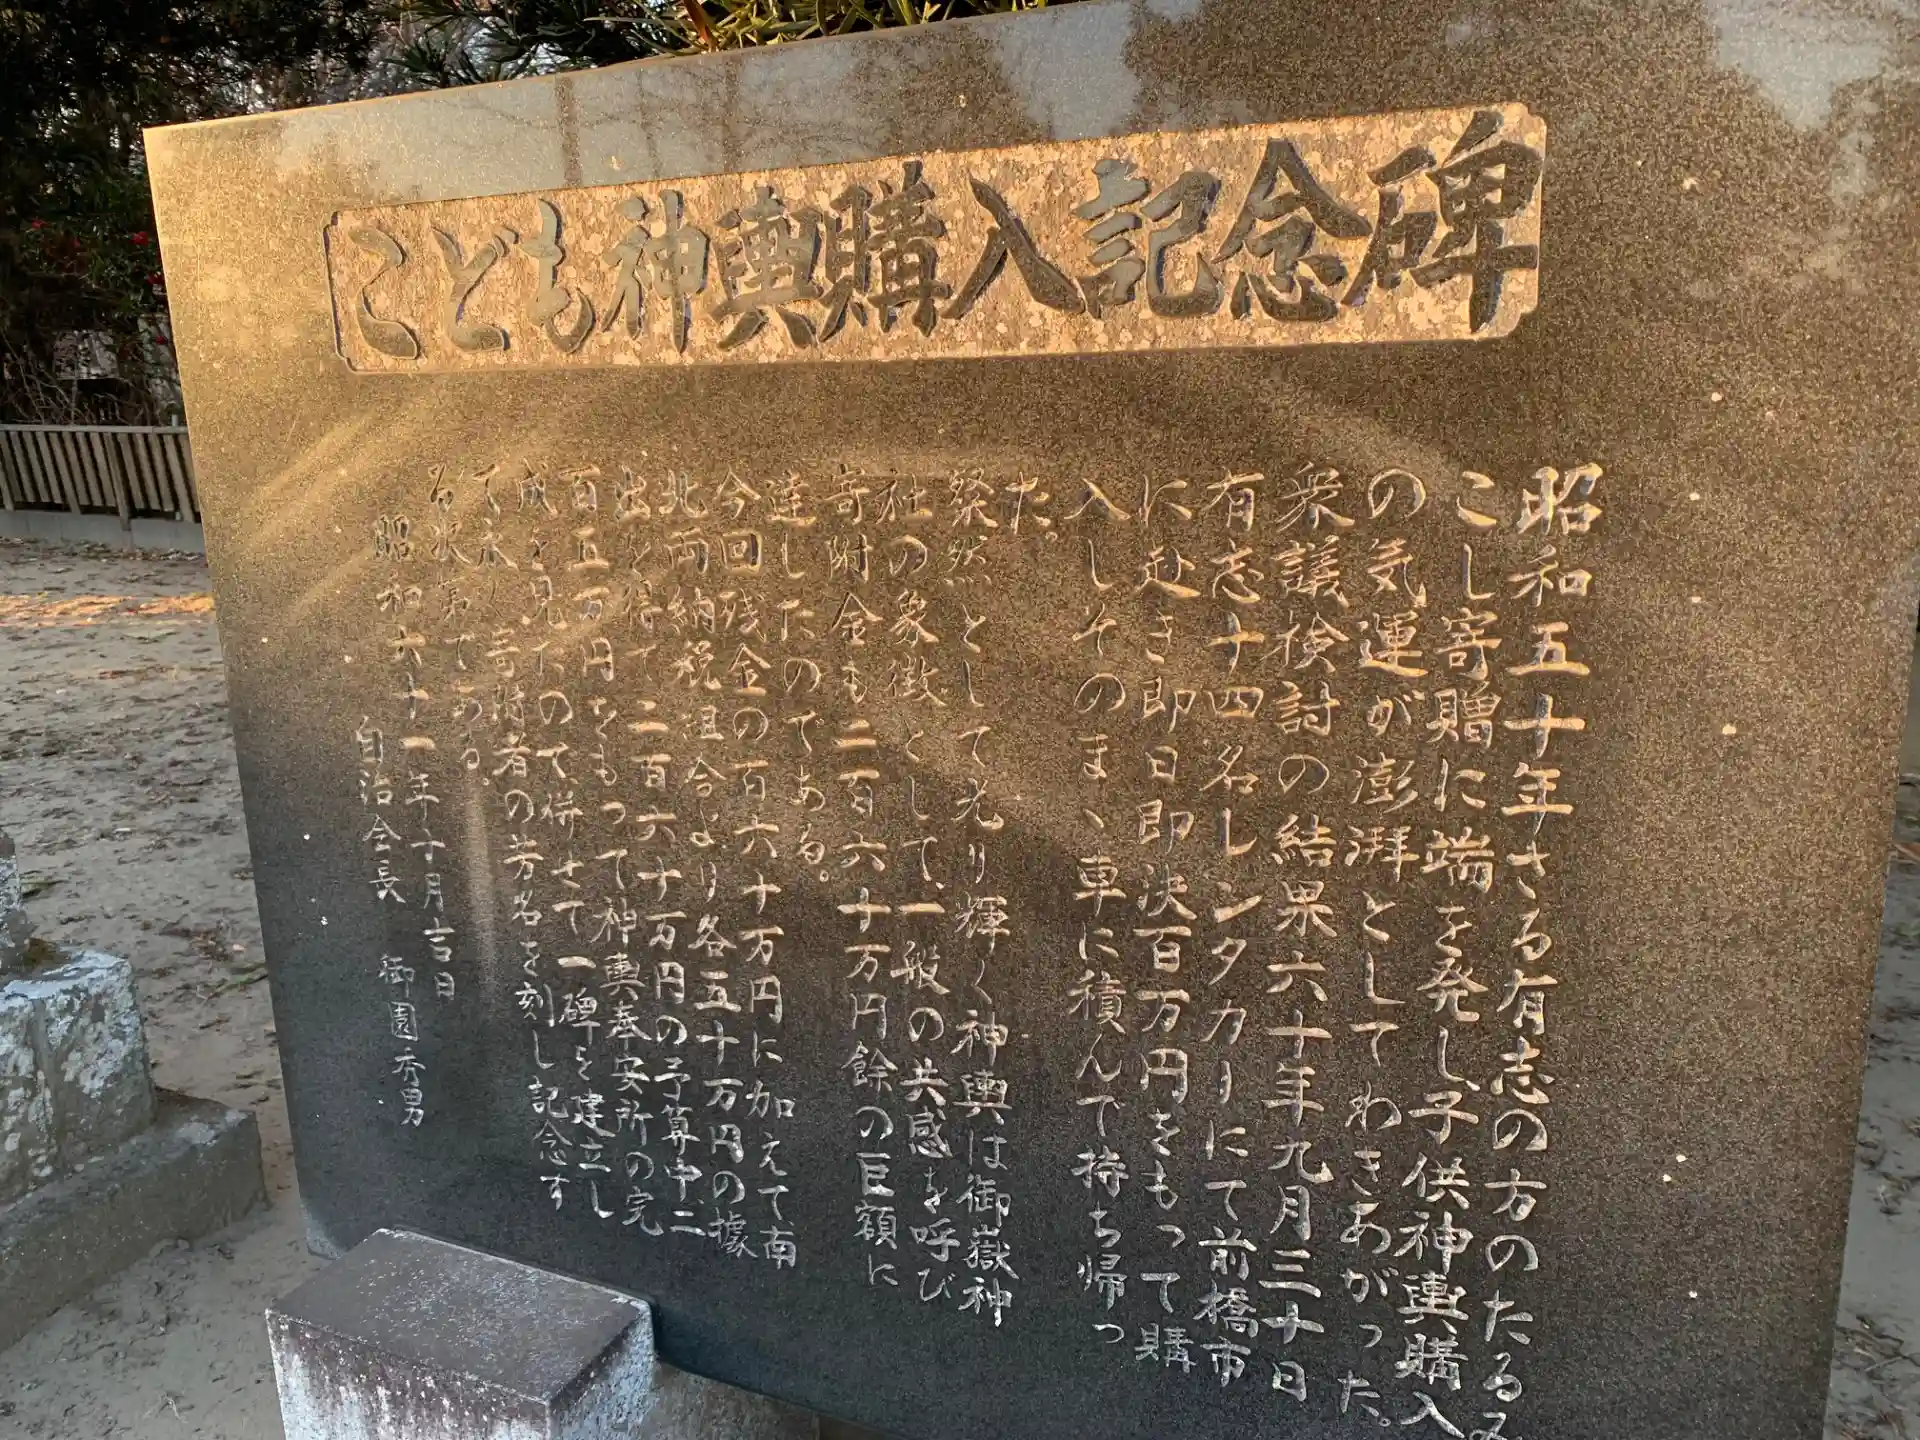 こども神輿購入記念碑
昭和五十年さる有志の方のたるみ
こし寄贈に端を発し子供神輿購入
の気運が澎湃としてわきあがった。
衆議検討の結果六十年九月三十日
有志十四名レンタカーにて前橋市
に赴き即日即決百万円をもって購
入しそのまゝ車に積んで持ち帰っ
た。
粲然として光り輝く神輿は御嶽神
社の象徴くして、一般の共感を呼び
寄附金も二百六十万円餘の巨額に
達したのである。
今回残金の百六十万円に加えて南
北両納税組合より各五十万円の據
出を得て二百六十万円の予算中、二
百五万円をもって神輿奉安所の完
成を見たので、併せて一碑を建立し
て永く寄附者の芳名を刻し記念す
る次第である。
昭和六十一年十月吉日
自治会長 御園秀男